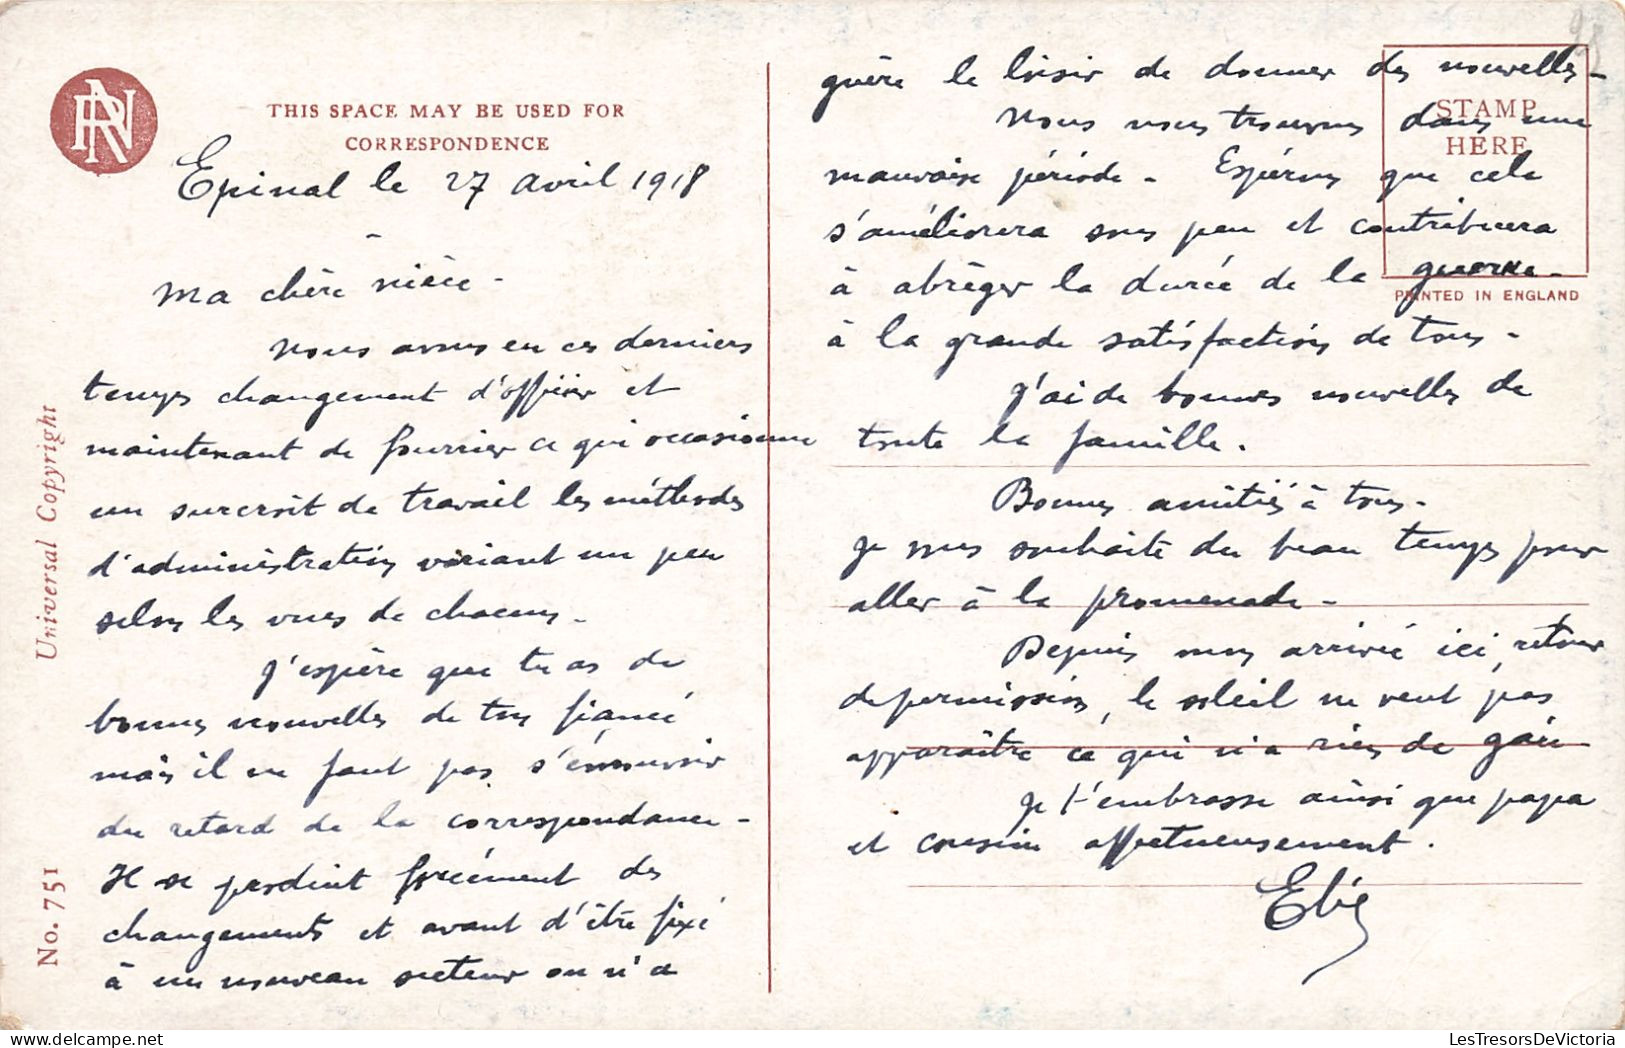 RN
THIS SPACE MAY BE USED FOR
CORRESPONDENCE
Epinal le 27 avril 1918
Ma chère nièce -
Nous avons eu ces derniers
temps changement d'officier et
maintenant de fourrier ce qui occasionne
un surcroit de travail les méthodes
d'administration variant un peu
selon les vues de chacun.
J'espère que tu as de
bonnes nouvelles de ton fiancé
mais il ne faut pas s'émouvoir
du retard de la correspondance -
Il se produit forcément des
changements et avant d'être fixé
à un nouveau secteur on n'a
guère le loisir de donner des nouvelles -
Nous nous trouvons dans une
mauvaise période - Espérons que cela
s'améliorera sous peu et contribuera
à abréger la durée de la guerre -
à la grande satisfaction de tous -
J'ai de bonnes nouvelles de
toute la famille.
Bonnes amitiés à tous -
Je vous souhaite du beau temps pour
aller à la promenade -
Depuis mon arrivée ici, retour
de permission, le soleil ne veut pas
apparaître ce qui n'a rien de gai -
Je t'embrasse ainsi que papa
et cousin affectueusement.
STAMP
HERE
PRINTED IN ENGLAND
Universal Copyright
No. 751
LesTresorsDeVictoria